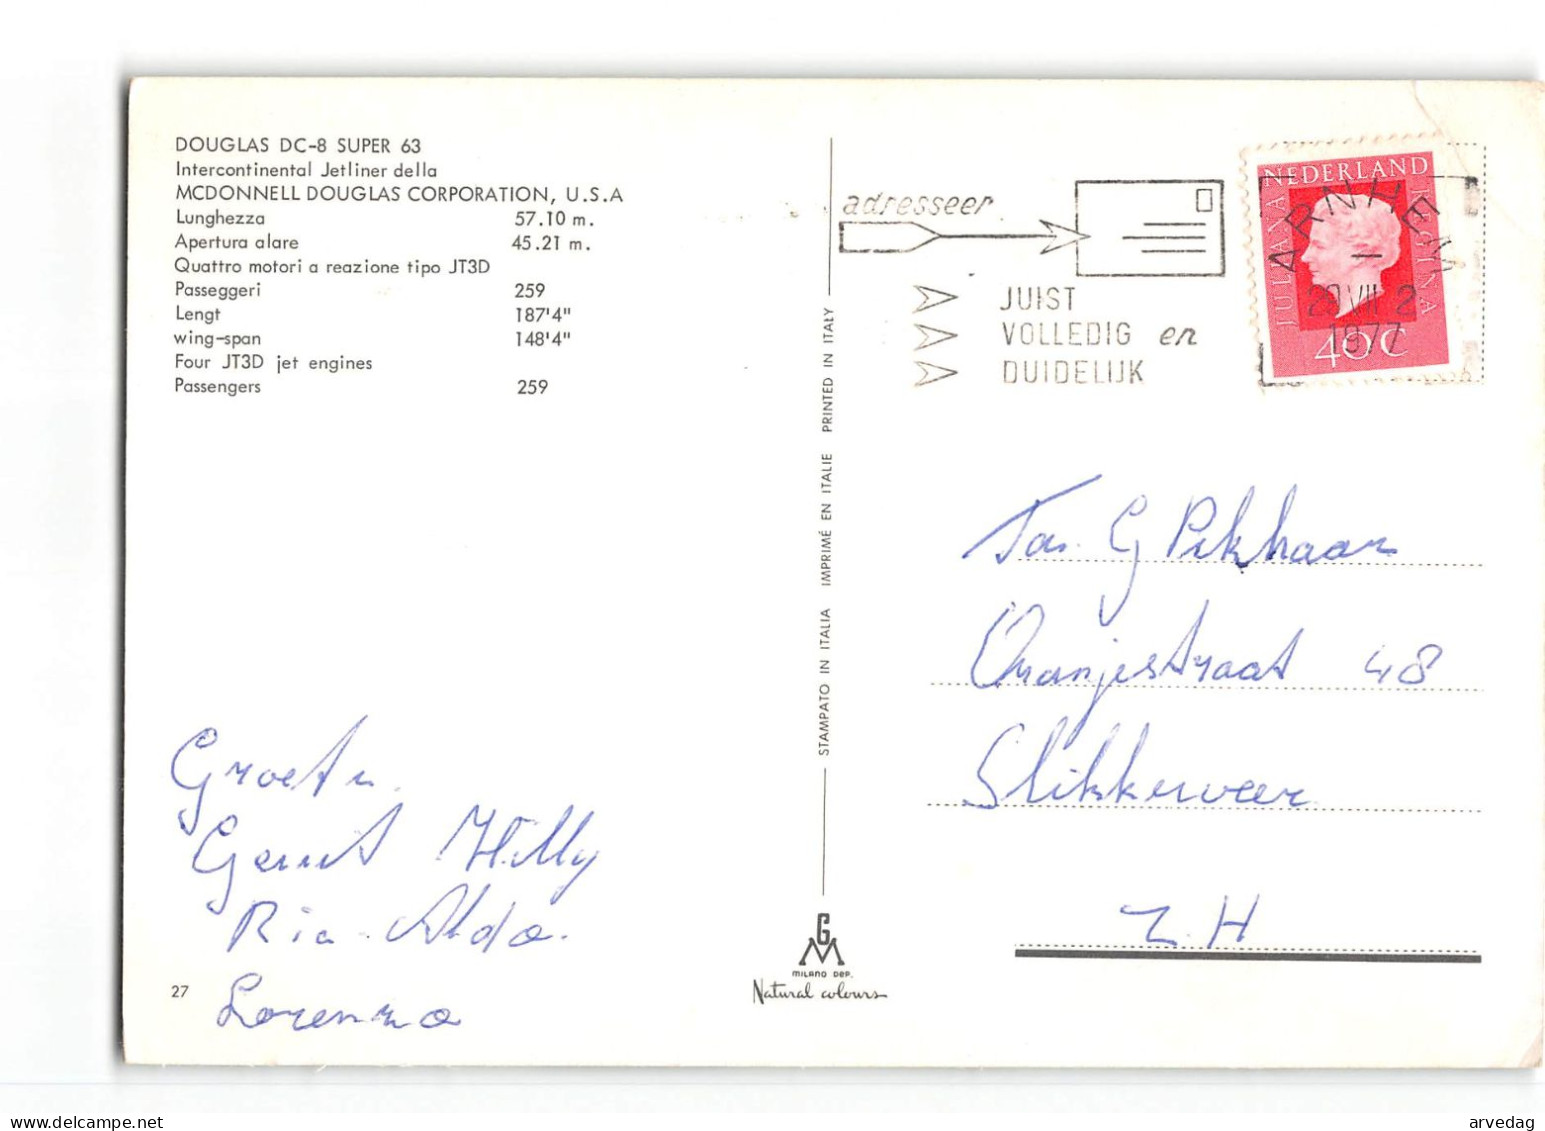 DOUGLAS DC-8 SUPER 63
Intercontinental Jetliner della
MCDONNELL DOUGLAS CORPORATION, U.S.A
Lunghezza 57.10 m.
Apertura alare 45.21 m.
Quattro motori a reazione tipo JT3D
Passeggeri 259
Lengt 187'4"
wing-span 148'4"
Four JT3D jet engines
Passengers 259
Groeten
Gerrit Willy
Ria - Aldo.
Lorenzo
27
STAMPATO IN ITALIA IMPRIMÉ EN ITALIE PRINTED IN ITALY
GM
MILANO DEP.
Natural colours
adresseer
JUIST
VOLLEDIG en
DUIDELIJK
NEDERLAND
JULIANA REGINA
40C
ARNHEM
VII 2
1977
Fam. G Pekhaar
Oranjestraat 48
Slikkerveer
Z.H
www.delcampe.net
arvedag